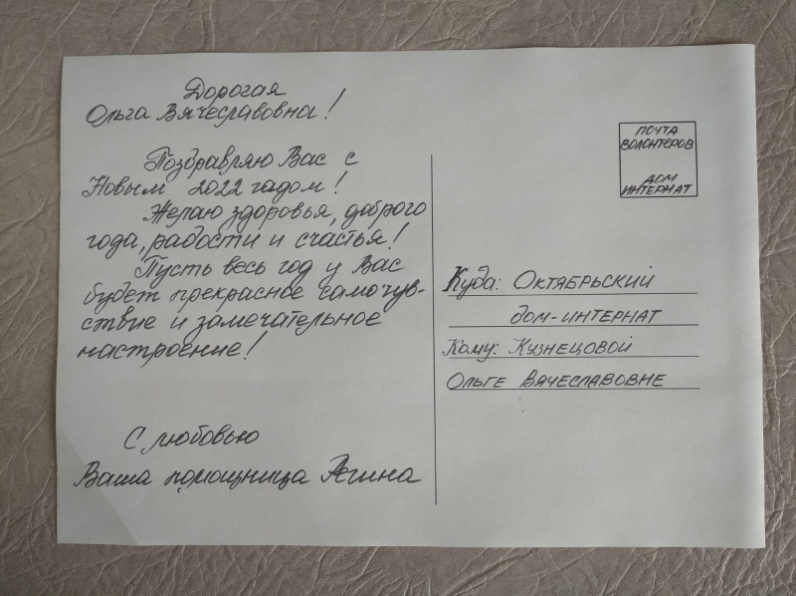 Дорогая
Ольга Вячеславовна!
Поздравляю Вас с
Новым 2022 годом!
Желаю здоровья, доброго
года, радости и счастья!
Пусть весь год у Вас
будет прекрасное самочув-
ствие и замечательное
настроение!
С любовью
Ваша помощница Регина
ПОЧТА
ВОЛОНТЕРОВ
ДОМ
ИНТЕРНАТ
Куда: ОКТЯБРЬСКИЙ
ДОМ-ИНТЕРНАТ
Кому: КУЗНЕЦОВОЙ
ОЛЬГЕ ВЯЧЕСЛАВОВНЕ